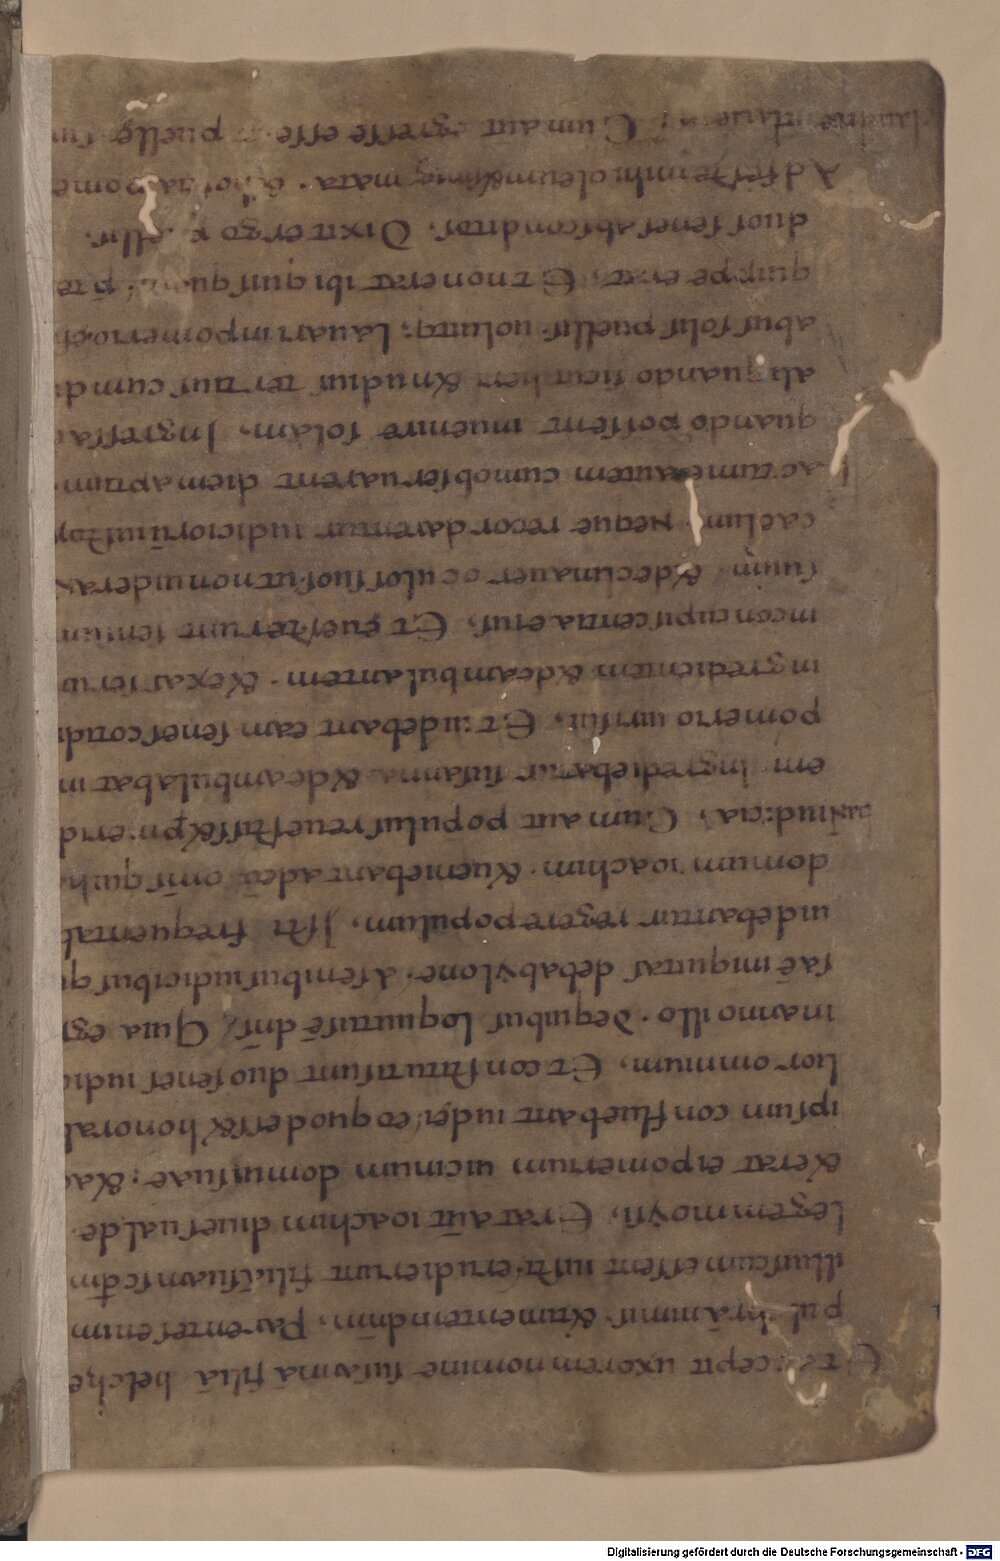 Et accepit uxorem nomine susannā filiā helchię
pulchrā nimis & timentem dn̄m. Parentes enim
illius cum essent iusti erudierunt filiā suam scd̄m
legem moysi. Erat aut̄ ioachim diues ualde.
& erat ei pomerium uicinum domui suae; & a
ipsum confluebant iudei eo quod ess& honorab
lior omnium. Et constituti sunt duo senes iudic
in anno illo. de quibus locutus ē dn̄s; Quia eg
sa ē iniquitas de babylone. a senibus iudicibus qu
uidebantur regere populum. Isti frequentab
domum ioachim. & ueniebant ad eos om̄s qui h
iudicia. Cum aut̄ populus reuertiss& p merid
em. Ingrediebatur susanna & deambulabat in
pomerio uiri sui. Et uidebant eam senes cotidi
ingredientem & deambulantem. & exarserun
in concupiscentia eius. Et euerterunt sensum
suum. & declinauer oculos suos ut non uidera
caelum. neque recordarentur iudiciorū iustor
Factum ē autem cum obseruarent diem aptum
quando possent inuenire solam. Ingressa
aliquando sicut heri & nudius tertius cum du
abus solis puellis. uoluitq; lauari in pomerio
quippe erat. Et non erat ibi quisquam p̄te
duos senes absconditos. Dixit ergo puellis.
Adferte mihi oleum & smigmata. & hostia pome
ut lauer; Cum aut̄ egresse esse puelle